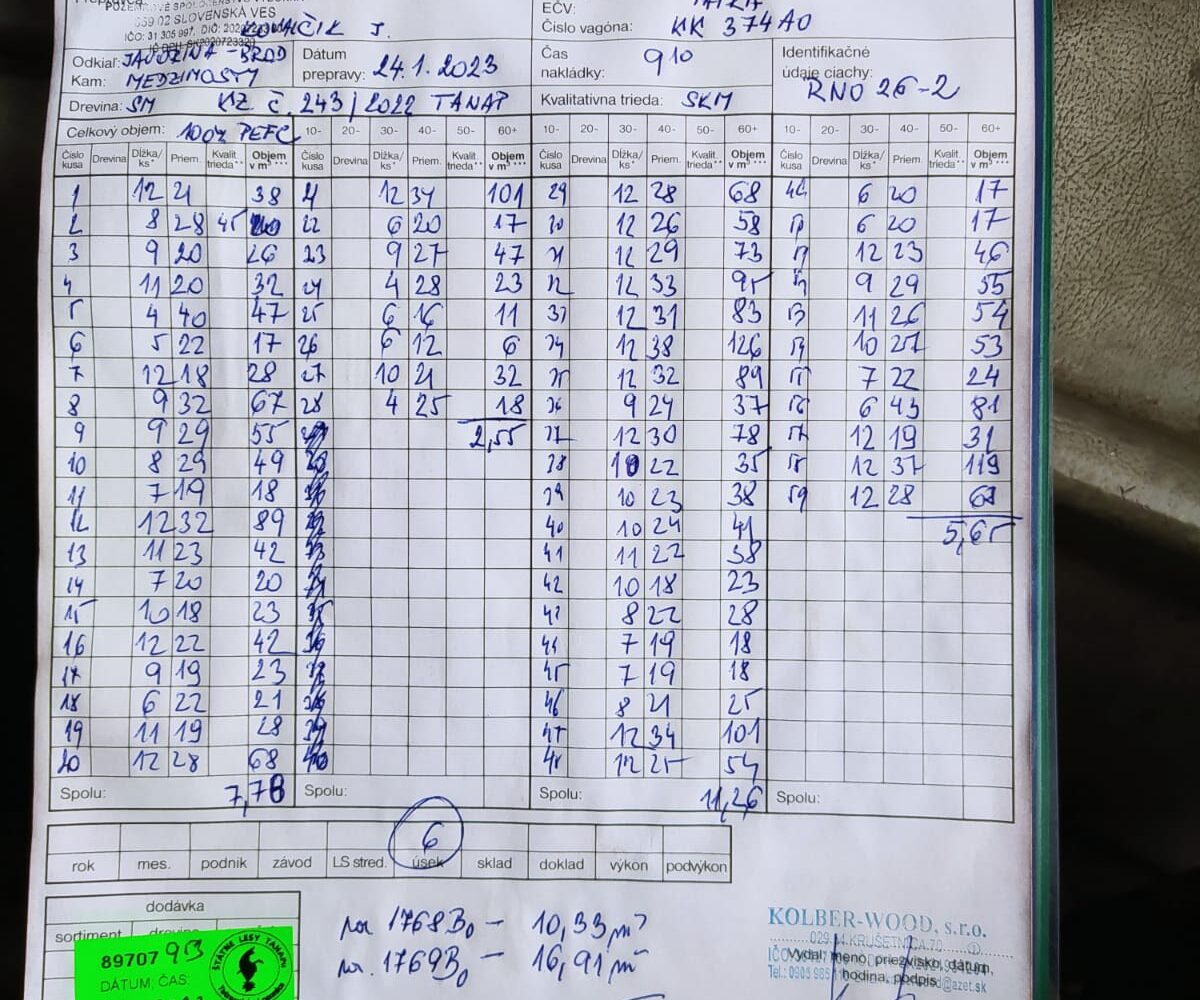 IČO: 31 305 997, DIČ:
059 02 SLOVENSKÁ VES
J.
EČV:
Číslo vagóna: KK 374AO
Odkiaľ: JAVORINA - BROD
Kam: MEDZIMOSTY
Dátum prepravy: 24.1.2023
Čas nakládky: 910
Identifikačné údaje ciachy: RNO 26-2
Drevina: SM KZ č. 243/2022 TANAP
Kvalitatívna trieda: SKM
Celkový objem: 100% PEFC 10- 20- 30- 40- 50- 60+ 10- 20- 30- 40- 50- 60+ 10- 20- 30- 40- 50- 60+
Číslo kusa Drevina Dĺžka/ ks* Priem. Kvalit. trieda** Objem v m³*** Číslo kusa Drevina Dĺžka/ ks* Priem. Kvalit. trieda** Objem v m³*** Číslo kusa Drevina Dĺžka/ ks* Priem. Kvalit. trieda** Objem v m³*** Číslo kusa Drevina Dĺžka/ ks* Priem. Kvalit. trieda** Objem v m³***
1 12 21 38 12 34 101 29 12 28 68 6 20 17
2 8 28 45 22 6 20 17 30 12 26 58 6 20 17
3 9 20 26 23 9 27 47 31 12 29 73 12 23 46
4 11 20 32 24 4 28 23 32 12 33 95 9 29 55
5 4 40 47 25 6 16 11 33 12 31 83 53 11 26 54
6 5 22 17 26 6 12 6 34 12 38 126 54 10 27 53
7 12 18 28 27 10 21 32 35 12 32 89 55 7 22 24
8 9 32 67 28 4 25 18 36 9 24 37 56 6 43 81
9 9 29 55 2,55 37 12 30 78 57 12 19 31
10 8 29 49 38 10 22 35 58 12 37 119
11 7 19 18 39 10 23 38 59 12 28 68
12 12 32 89 40 10 24 41 5,65
13 11 23 42 41 11 22 38
14 7 20 20 42 10 18 23
15 10 18 23 43 8 22 28
16 12 22 42 44 7 19 18
17 9 19 23 45 7 19 18
18 6 22 21 46 8 21 25
19 11 19 28 47 12 34 101
20 12 28 68 48 12 25 54
Spolu: 7,78 Spolu: Spolu: 11,26 Spolu:
6
rok mes. podnik závod LS stred. úsek sklad doklad výkon podvýkon
dodávka
sortiment
na 1768 B0 - 10,33 m³
na. 1769 B0 - 16,91 m³
KOLBER-WOOD, s.r.o.
Vydal: meno, priezvisko, dátum,
hodina, podpis
89707
ŠTÁTNE LESY TANAPU
DÁTUM, ČAS: